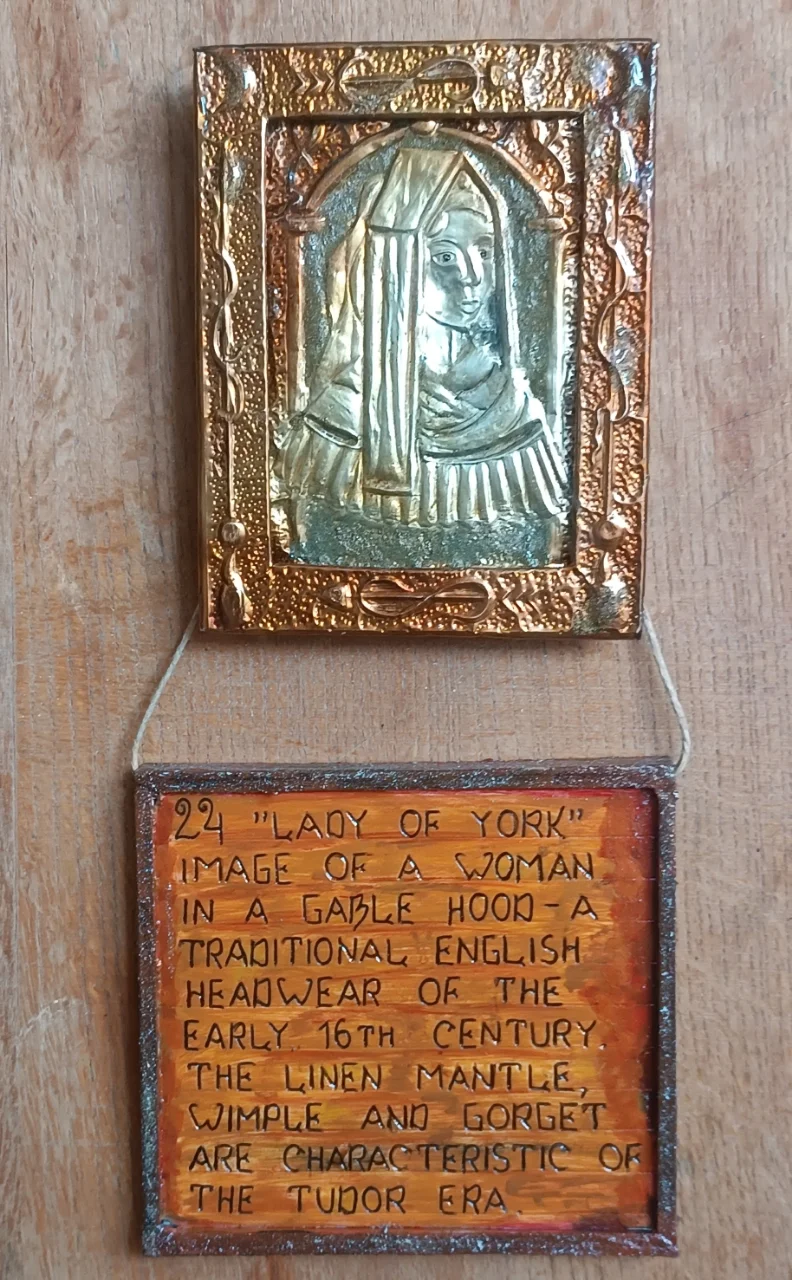 22 "LADY OF YORK"
IMAGE OF A WOMAN
IN A GABLE HOOD-A
TRADITIONAL ENGLISH
HEADWEAR OF THE
EARLY 16TH CENTURY.
THE LINEN MANTLE,
WIMPLE AND GORGET
ARE CHARACTERISTIC OF
THE TUDOR ERA.